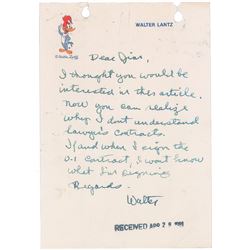 WALTER LANTZ
© Walter Lantz
Dear Jim,
I thought you would be
interested in this article.
Now you can realize
why I dont understand
lawyers contracts.
If and when I sign the
U-I contract, I wont know
what I'm signing
Regards.
Walter
RECEIVED AUG 29